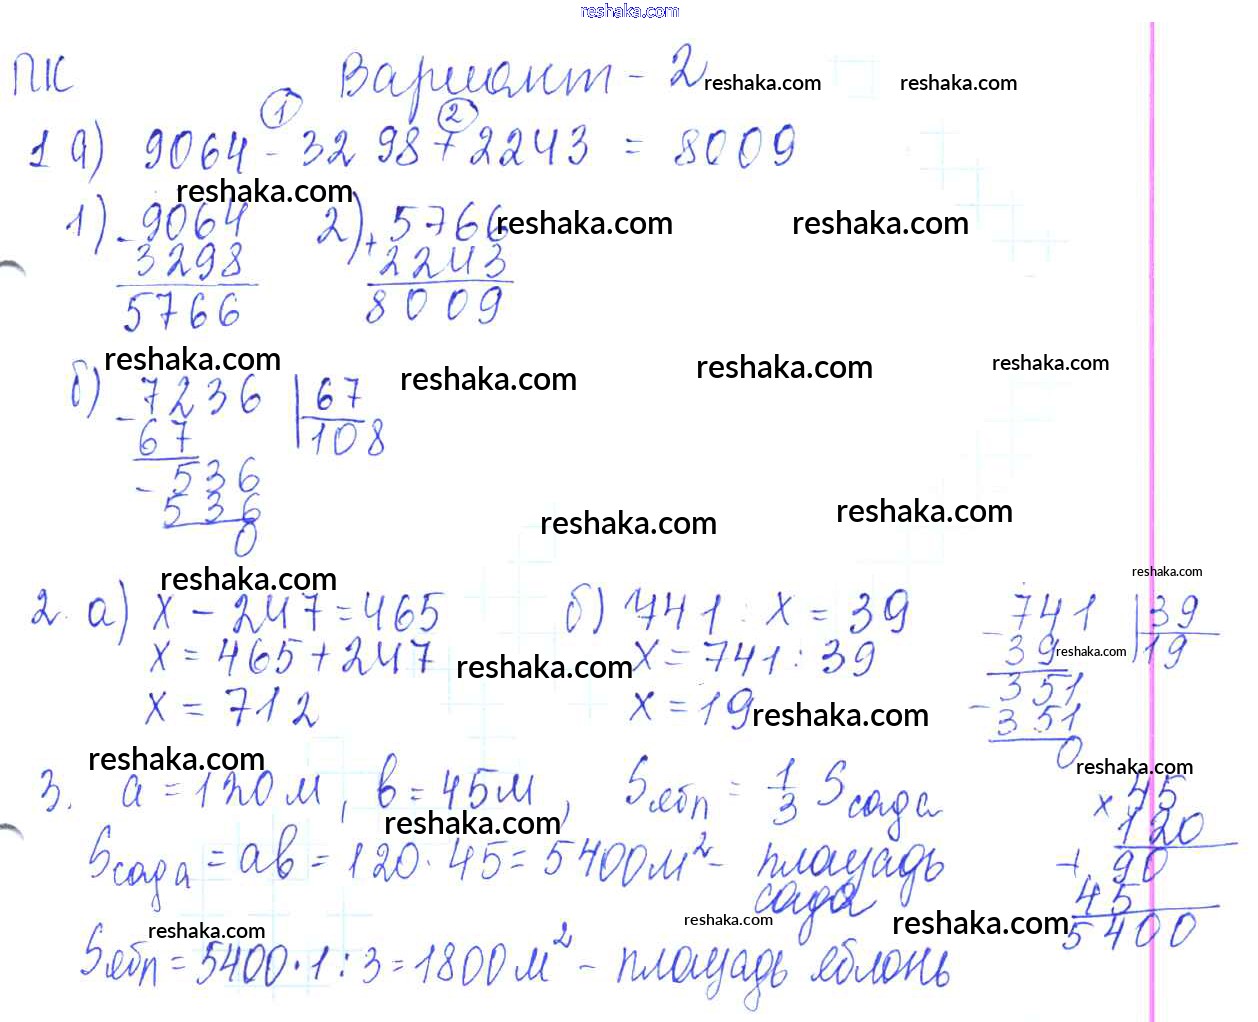 reshaka.com
ПК Вариант - 2 reshaka.com reshaka.com
① ②
1 а) 9064 - 3298 + 2243 = 8009
reshaka.com
1) - 9064 2) + 5766 reshaka.com reshaka.com
3298 2243
5766 8009
reshaka.com reshaka.com reshaka.com reshaka.com
б) - 7236 | 67
67 108
- 536
536
0
reshaka.com reshaka.com
reshaka.com reshaka.com
2. а) x - 247 = 465 б) 741 : x = 39 - 741 | 39
x = 465 + 247 reshaka.com x = 741 : 39 39 reshaka.com 19
x = 712 x = 19 reshaka.com - 351
351
0
reshaka.com reshaka.com
3. a = 120 м, b = 45 м, Sябл = 1/3 Sсада × 45
reshaka.com 120
Sсада = ab = 120 · 45 = 5400 м² - площадь сада + 90
45
reshaka.com reshaka.com reshaka.com 5400
Sябл = 5400 · 1 : 3 = 1800 м² - площадь яблонь